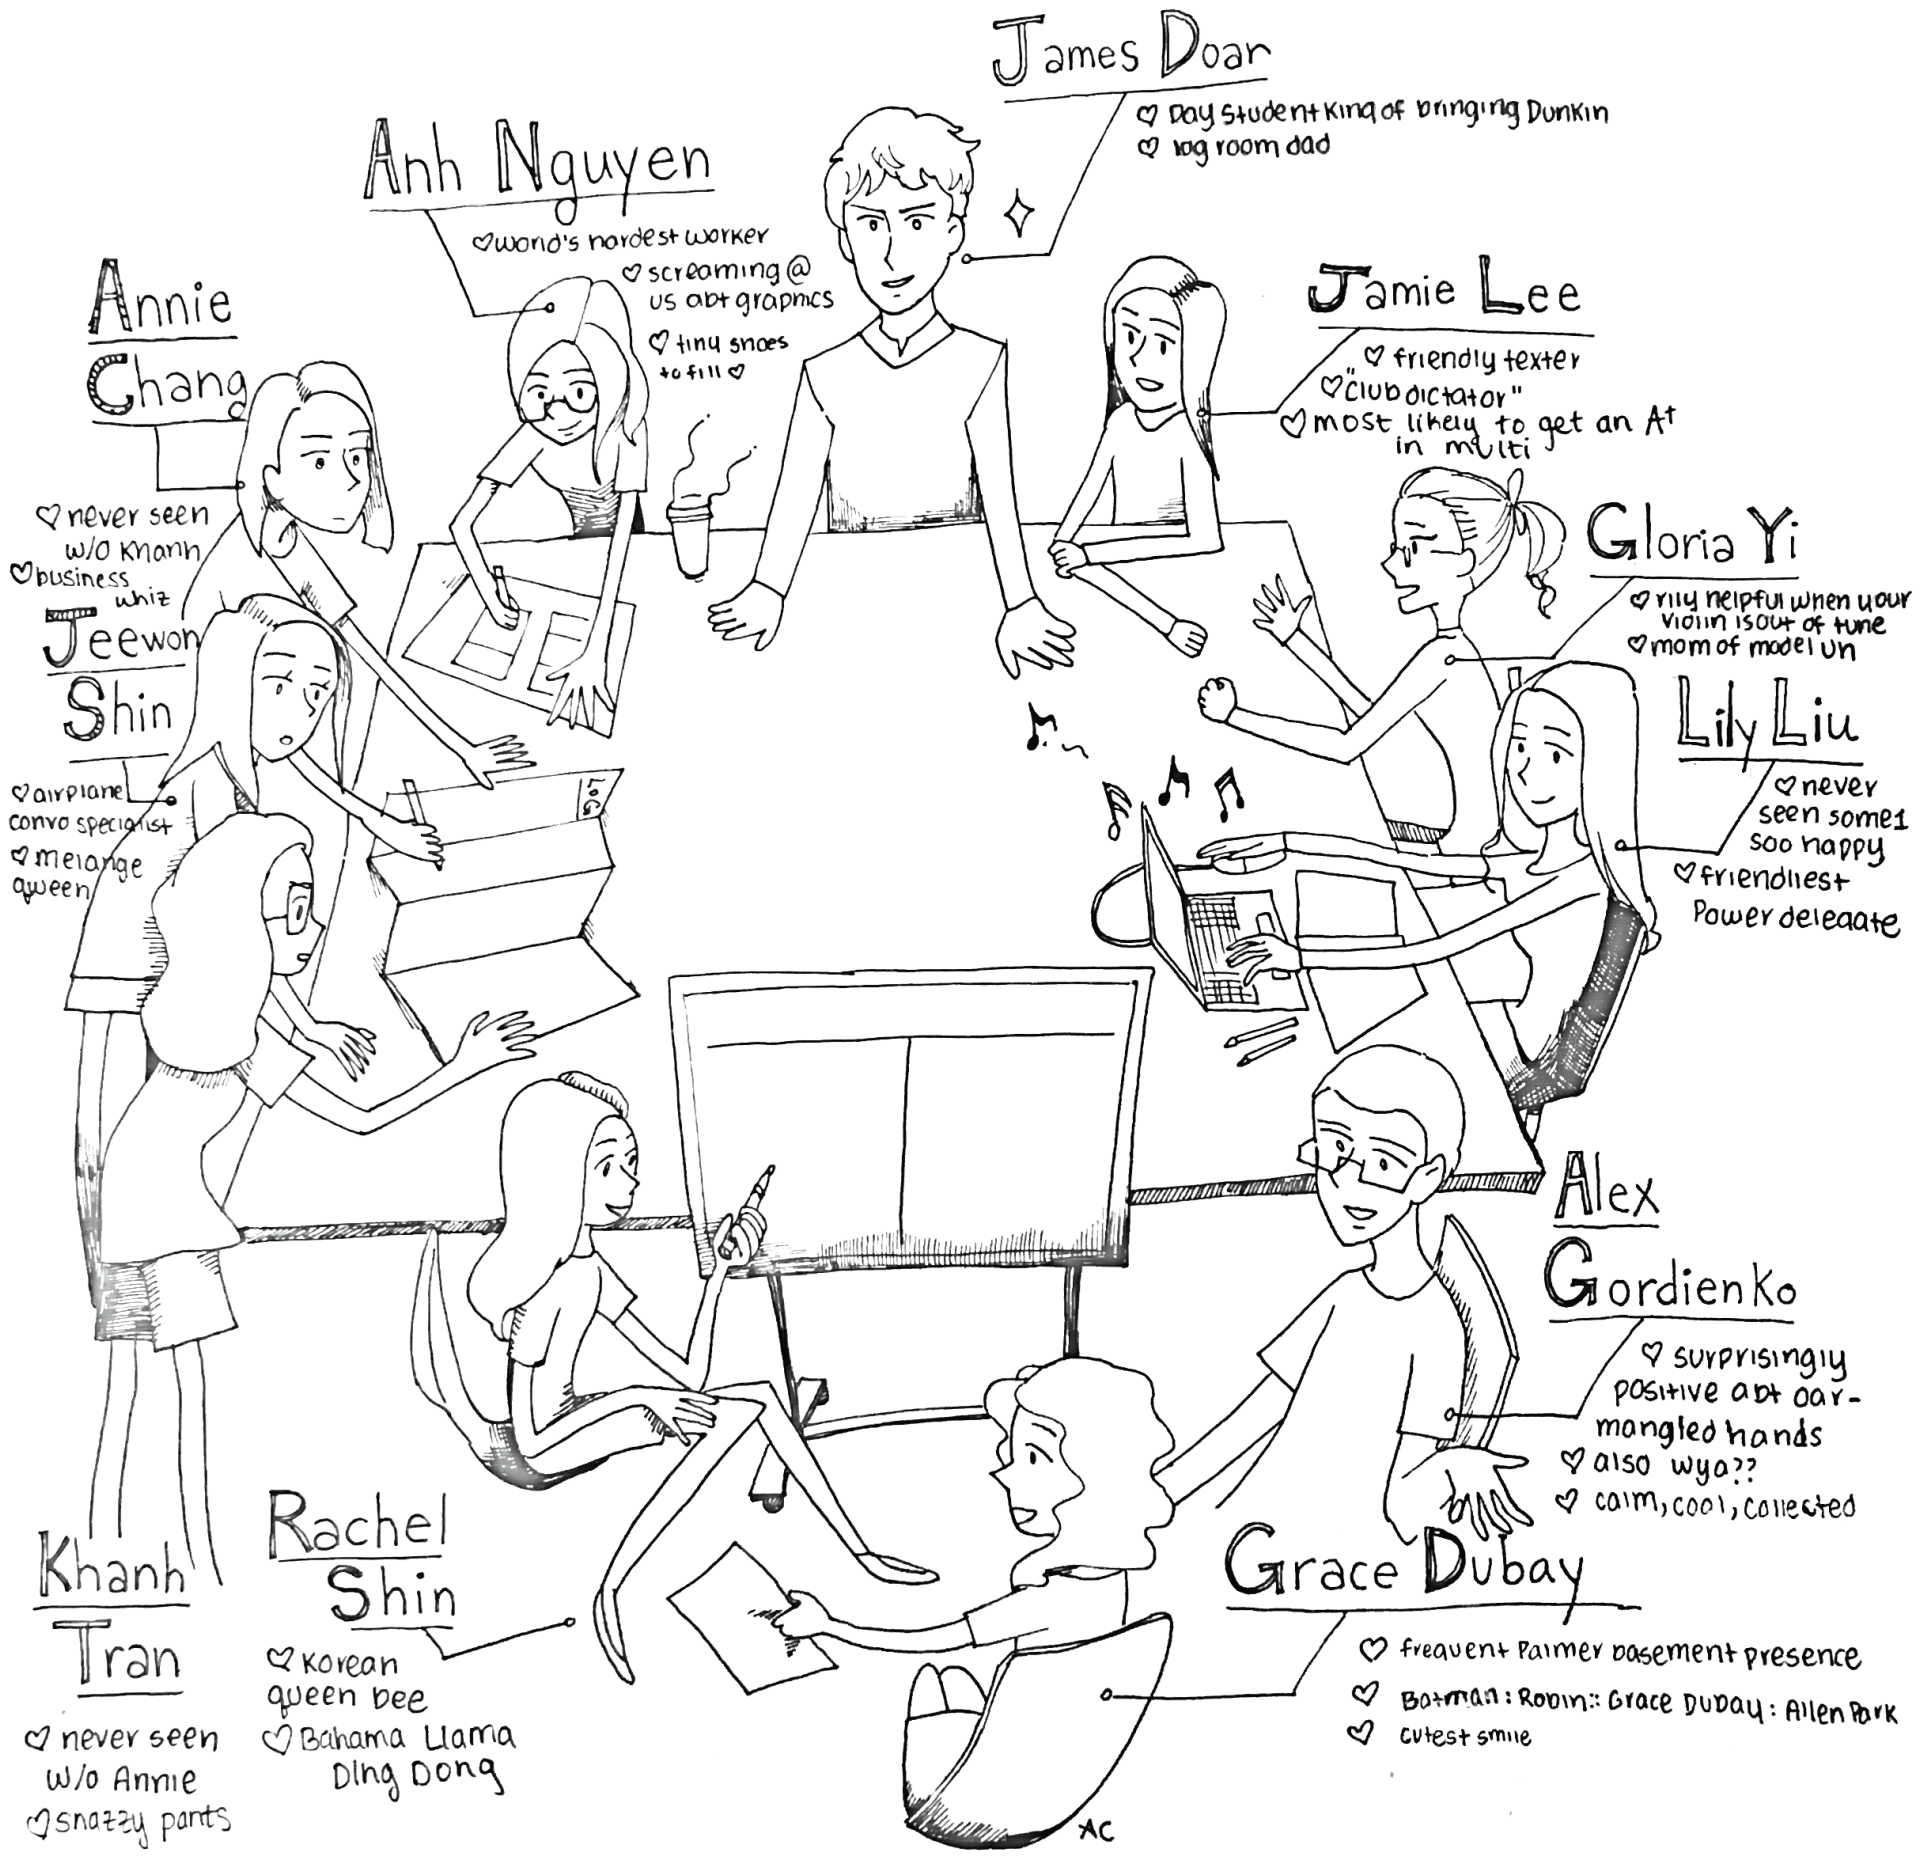 James Doar
♡ Day Student King of bringing Dunkin
♡ log room dad
Anh Nguyen
♡ world's hardest worker
♡ screaming @
us abt graphics
♡ tiny shoes
to fill ♡
Jamie Lee
♡ friendly texter
♡ "club dictator"
♡ most likely to get an A+
in multi
Annie
Chang
♡ never seen
w/o Khanh
♡ business
whiz
Gloria Yi
♡ rlly helpful when your
violin is out of tune
♡ mom of model un
Jeewon
Shin
♡ airplane
convo specialist
♡ melange
qween
LOG
Lily Liu
♡ never
seen some1
soo happy
♡ friendliest
Power delegate
Alex
Gordienko
♡ surprisingly
positive abt oar-
mangled hands
♡ also wya??
♡ calm, cool, collected
Khanh
Tran
♡ never seen
w/o Annie
♡ snazzy pants
Rachel
Shin
♡ Korean
queen bee
♡ Bahama Llama
Ding Dong
Grace Dubay
♡ frequent Palmer basement presence
♡ Batman : Robin :: Grace Dubay : Allen Park
♡ cutest smile
AC